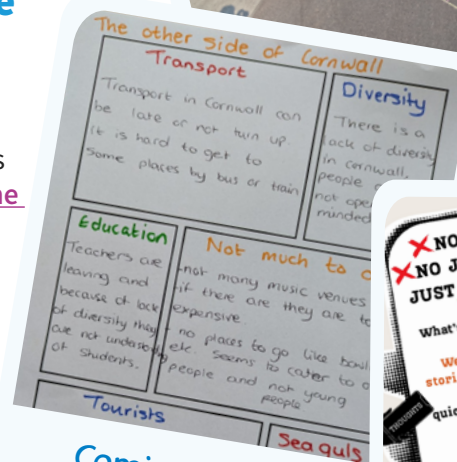 The other side of Cornwall
Transport
Transport in Cornwall can
be late or not turn up.
it is hard to get to
some places by bus or train
Diversity
There is a
lack of diversity
in cornwall,
people
not open
minded
Education
Teachers are
leaving and
because of lack
of diversity they
are not understanding
of students.
Not much to
-not many music venues
-if there are they are
expensive.
- no places to go like
etc. Seems to cater to
people and not young
people
Tourists
Sea guls
NO
NO J
JUST
What'
We
stori
quic
THOUGHTS